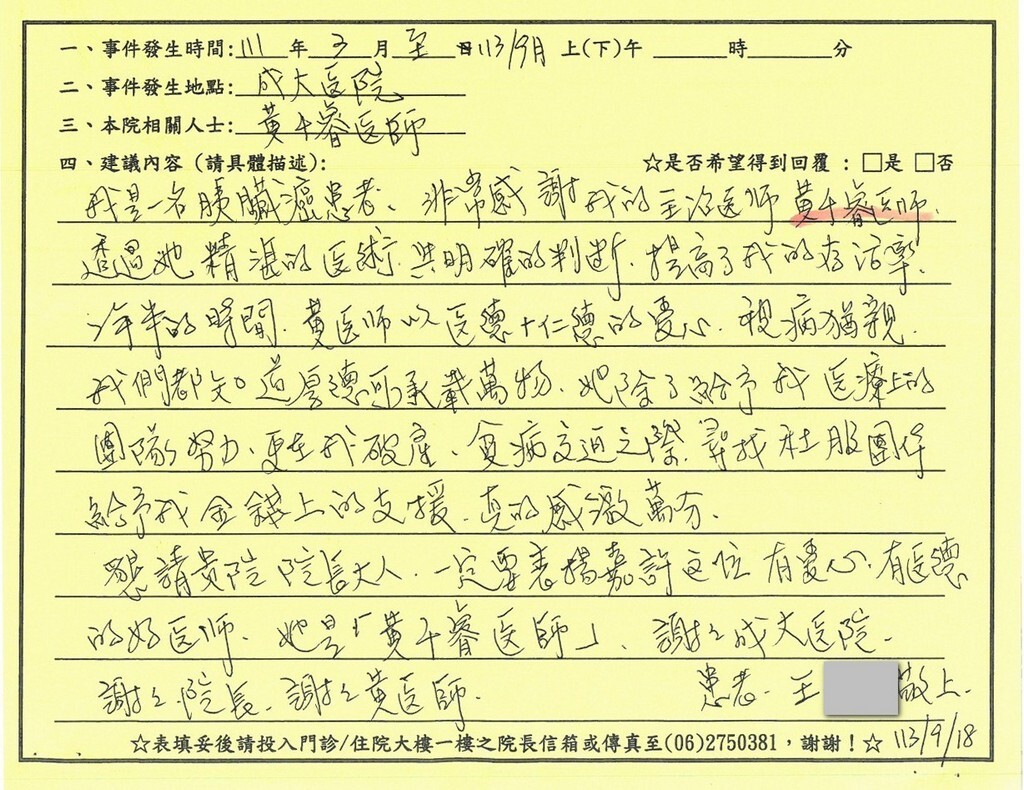 一、事件發生時間: 111 年 3 月 至 日 113/9月 上(下)午 ____ 時 ____ 分
二、事件發生地點: 成大医院
三、本院相關人士: 黃千睿医師
四、建議內容 (請具體描述): ☆是否希望得到回覆 : □是 □否
我是一名胰臟癌患者、非常感謝我的主治医师黃千睿医師.
透過她精湛的医術.與明確的判斷.提高了我的存活率.
年半的時間.黃医师以医德+仁德的愛心.視病猶親.
我們都知道厚德可承載萬物.她除了給予我医療上的
團隊努力.更在我破產、貧病交迫之際.尋找社服團体
給予我金錢上的支援.真的感激萬分.
懇請貴院院長大人.一定要表揚嘉許這位有愛心.有医德
的好医师.她是「黃千睿医師」、謝謝成大医院.
謝謝院長.謝謝黃医師. 患者.王 敬上.
☆表填妥後請投入門診/住院大樓一樓之院長信箱或傳真至(06)2750381,謝謝!☆ 113/9/18